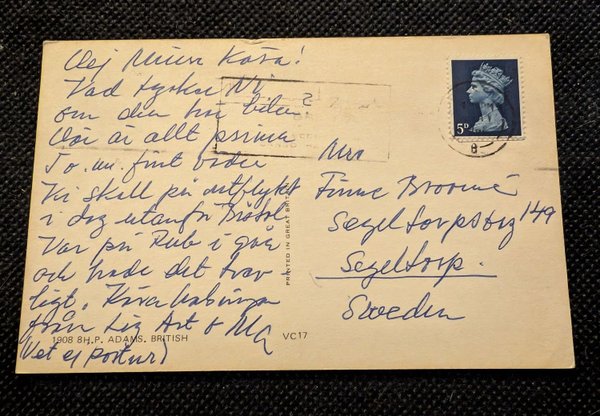 Hej Mina Kära!
Vad tycker Ni
om den här bilen
Här är allt prima
T.o.m. fint väder
Vi skall på utflykt
i dag utanför Bristol
Var på Pub i går
och hade det trev
ligt. Kära hälsningar
från Liz Art &
(Vet ej portot)
1908 8H.P. ADAMS. BRITISH
VC17
PRINTED IN GREAT BRITAIN
5D
Mrs
Broomé
Segeltorpsväg 149
Segeltorp.
Sweden